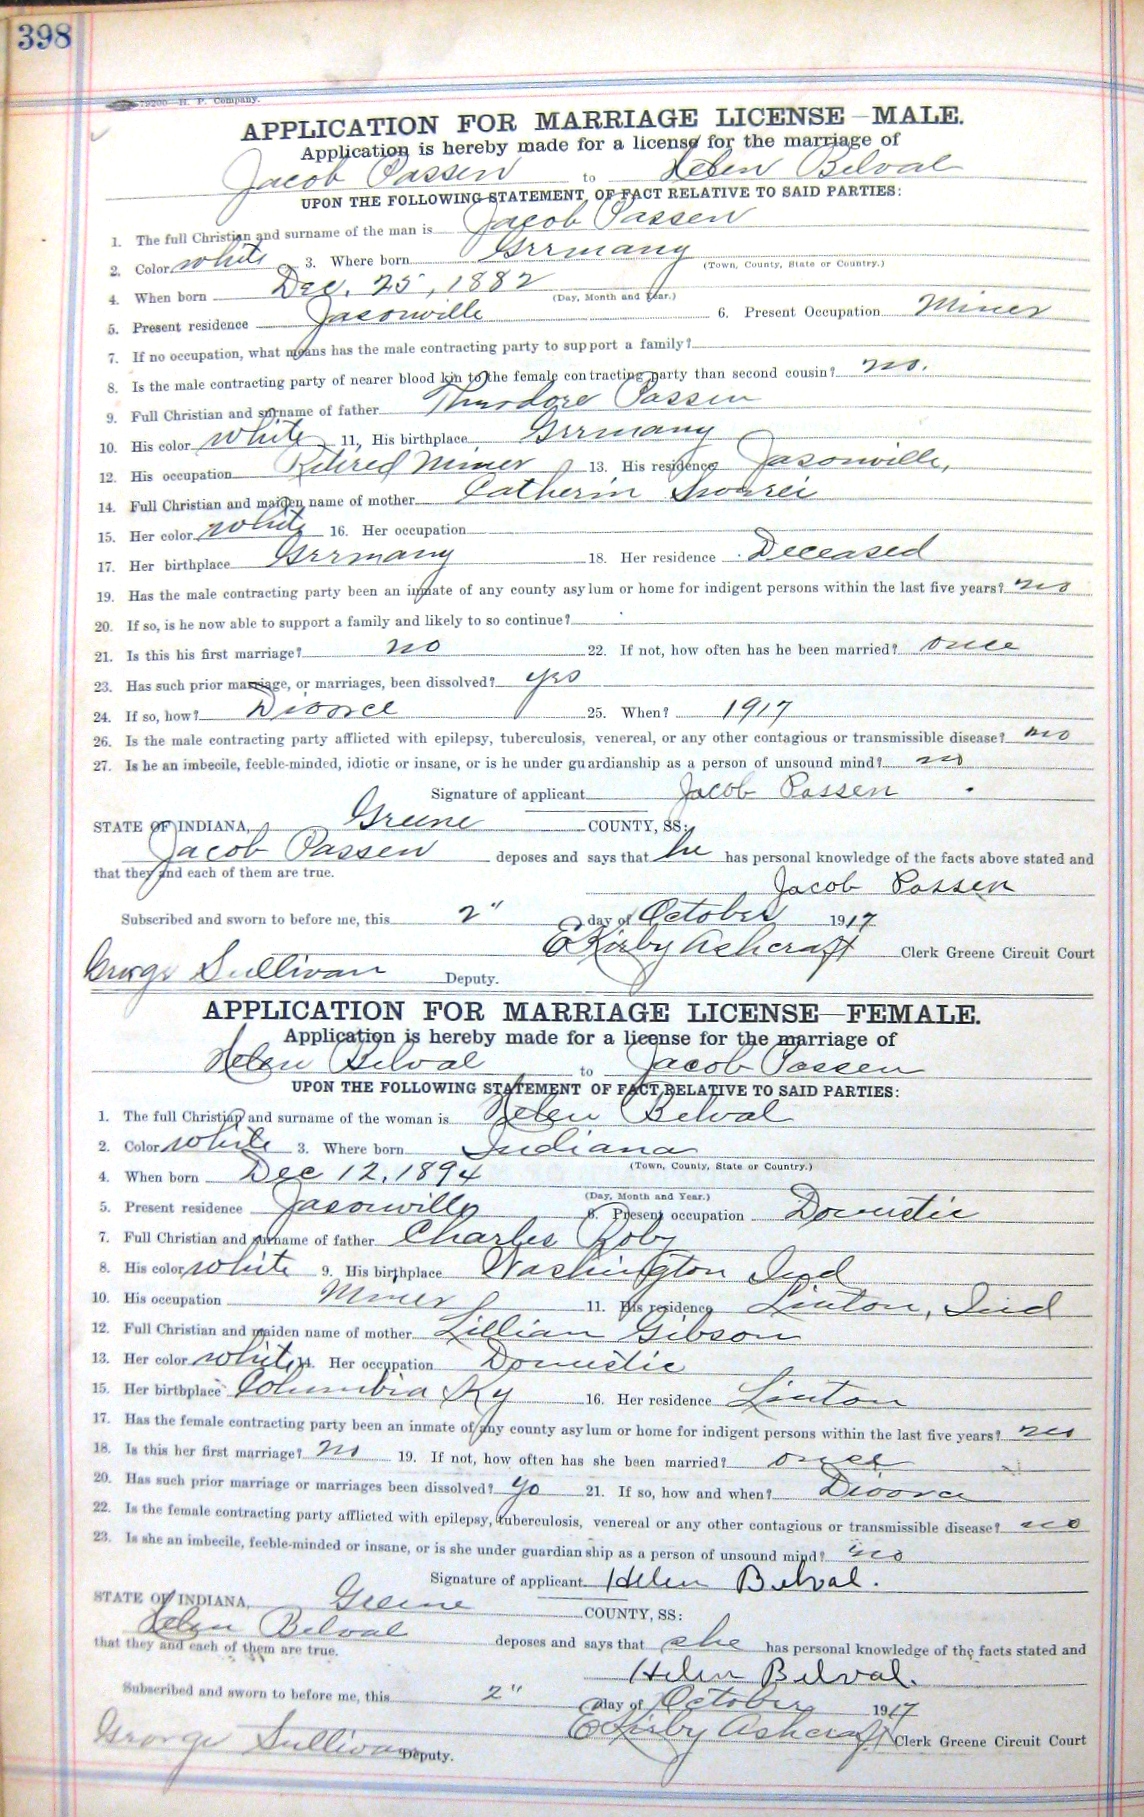 398
79200—H. P. Company.
APPLICATION FOR MARRIAGE LICENSE—MALE.
Application is hereby made for a license for the marriage of
Jacob Passen to Helen Belval
UPON THE FOLLOWING STATEMENT OF FACT RELATIVE TO SAID PARTIES:
1. The full Christian and surname of the man is Jacob Passen
2. Color white 3. Where born Germany
(Town, County, State or Country.)
4. When born Dec. 25, 1882
(Day, Month and Year.)
5. Present residence Jasonville 6. Present Occupation Miner
7. If no occupation, what means has the male contracting party to support a family?
8. Is the male contracting party of nearer blood kin to the female contracting party than second cousin? no.
9. Full Christian and surname of father Theodore Passen
10. His color white 11, His birthplace Germany
12. His occupation Retired Miner 13. His residence Jasonville,
14. Full Christian and maiden name of mother Catherin
15. Her color white 16. Her occupation
17. Her birthplace Germany 18. Her residence Deceased
19. Has the male contracting party been an inmate of any county asylum or home for indigent persons within the last five years? no
20. If so, is he now able to support a family and likely to so continue?
21. Is this his first marriage? no 22. If not, how often has he been married? once
23. Has such prior marriage, or marriages, been dissolved? yes
24. If so, how? Divorce 25. When? 1917
26. Is the male contracting party afflicted with epilepsy, tuberculosis, venereal, or any other contagious or transmissible disease? no
27. Is he an imbecile, feeble-minded, idiotic or insane, or is he under guardianship as a person of unsound mind? no
Signature of applicant Jacob Passen
STATE OF INDIANA, Greene COUNTY, SS:
Jacob Passen deposes and says that he has personal knowledge of the facts above stated and
that they and each of them are true.
Jacob Passen
Subscribed and sworn to before me, this 2" day of October 1917
E Kirby Ashcraft Clerk Greene Circuit Court
George Sullivan Deputy.
APPLICATION FOR MARRIAGE LICENSE—FEMALE.
Application is hereby made for a license for the marriage of
Helen Belval to Jacob Passen
UPON THE FOLLOWING STATEMENT OF FACT RELATIVE TO SAID PARTIES:
1. The full Christian and surname of the woman is Helen Belval
2. Color white 3. Where born Indiana
(Town, County, State or Country.)
4. When born Dec 12, 1894
(Day, Month and Year.)
5. Present residence Jasonville 6. Present occupation Domestic
7. Full Christian and surname of father Charles Roby
8. His color white 9. His birthplace Washington Ind
10. His occupation Miner 11. His residence Linton, Ind
12. Full Christian and maiden name of mother Lillian Gibson
13. Her color white 14. Her occupation Domestic
15. Her birthplace Columbia Ky 16. Her residence Linton
17. Has the female contracting party been an inmate of any county asylum or home for indigent persons within the last five years? no
18. Is this her first marriage? no 19. If not, how often has she been married? once
20. Has such prior marriage or marriages been dissolved? 21. If so, how and when? Divorce
22. Is the female contracting party afflicted with epilepsy, tuberculosis, venereal or any other contagious or transmissible disease? no
23. Is she an imbecile, feeble-minded or insane, or is she under guardianship as a person of unsound mind? no
Signature of applicant Helen Belval.
STATE OF INDIANA, Greene COUNTY, SS:
Helen Belval deposes and says that she has personal knowledge of the facts stated and
that they and each of them are true.
Helen Belval.
Subscribed and sworn to before me, this 2" day of October 1917
E Kirby Ashcraft Clerk Greene Circuit Court
George Sullivan Deputy.